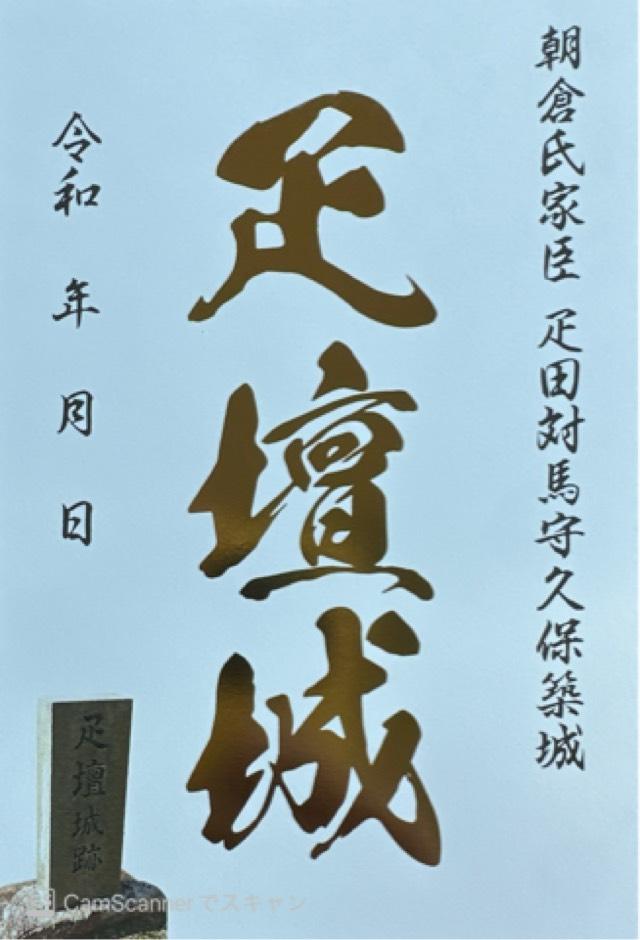 朝倉氏家臣 疋田対馬守久保築城
疋壇城
令和 年 月 日
疋壇城跡
CamScannerでスキャン